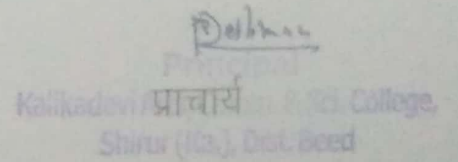 Principal
प्राचार्य
Kalikadevi A & Sci. College,
Shirur (Ka.), Dist. Beed